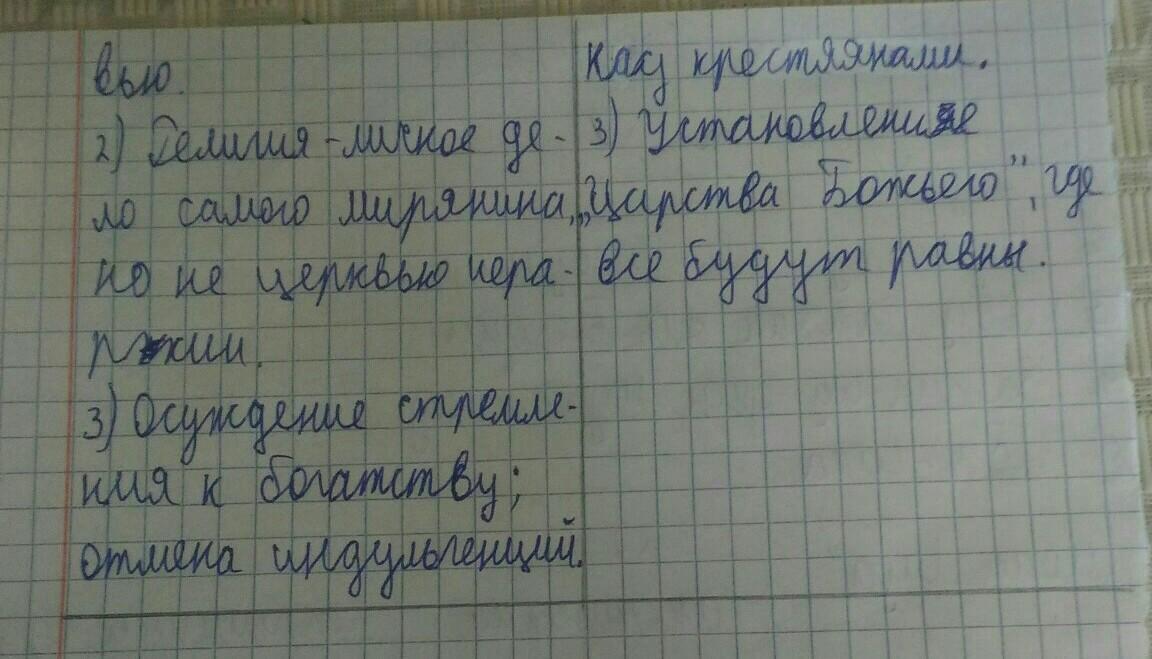 вью.
2) Религия - личное де-
ло самого мирянина,
но не церквью иера-
рхии.
3) Осуждение стремле-
ния к богатству;
отмена индульгенций.
крестяянами.
3) Установление
„Царства Божьего", где
все будут равны.